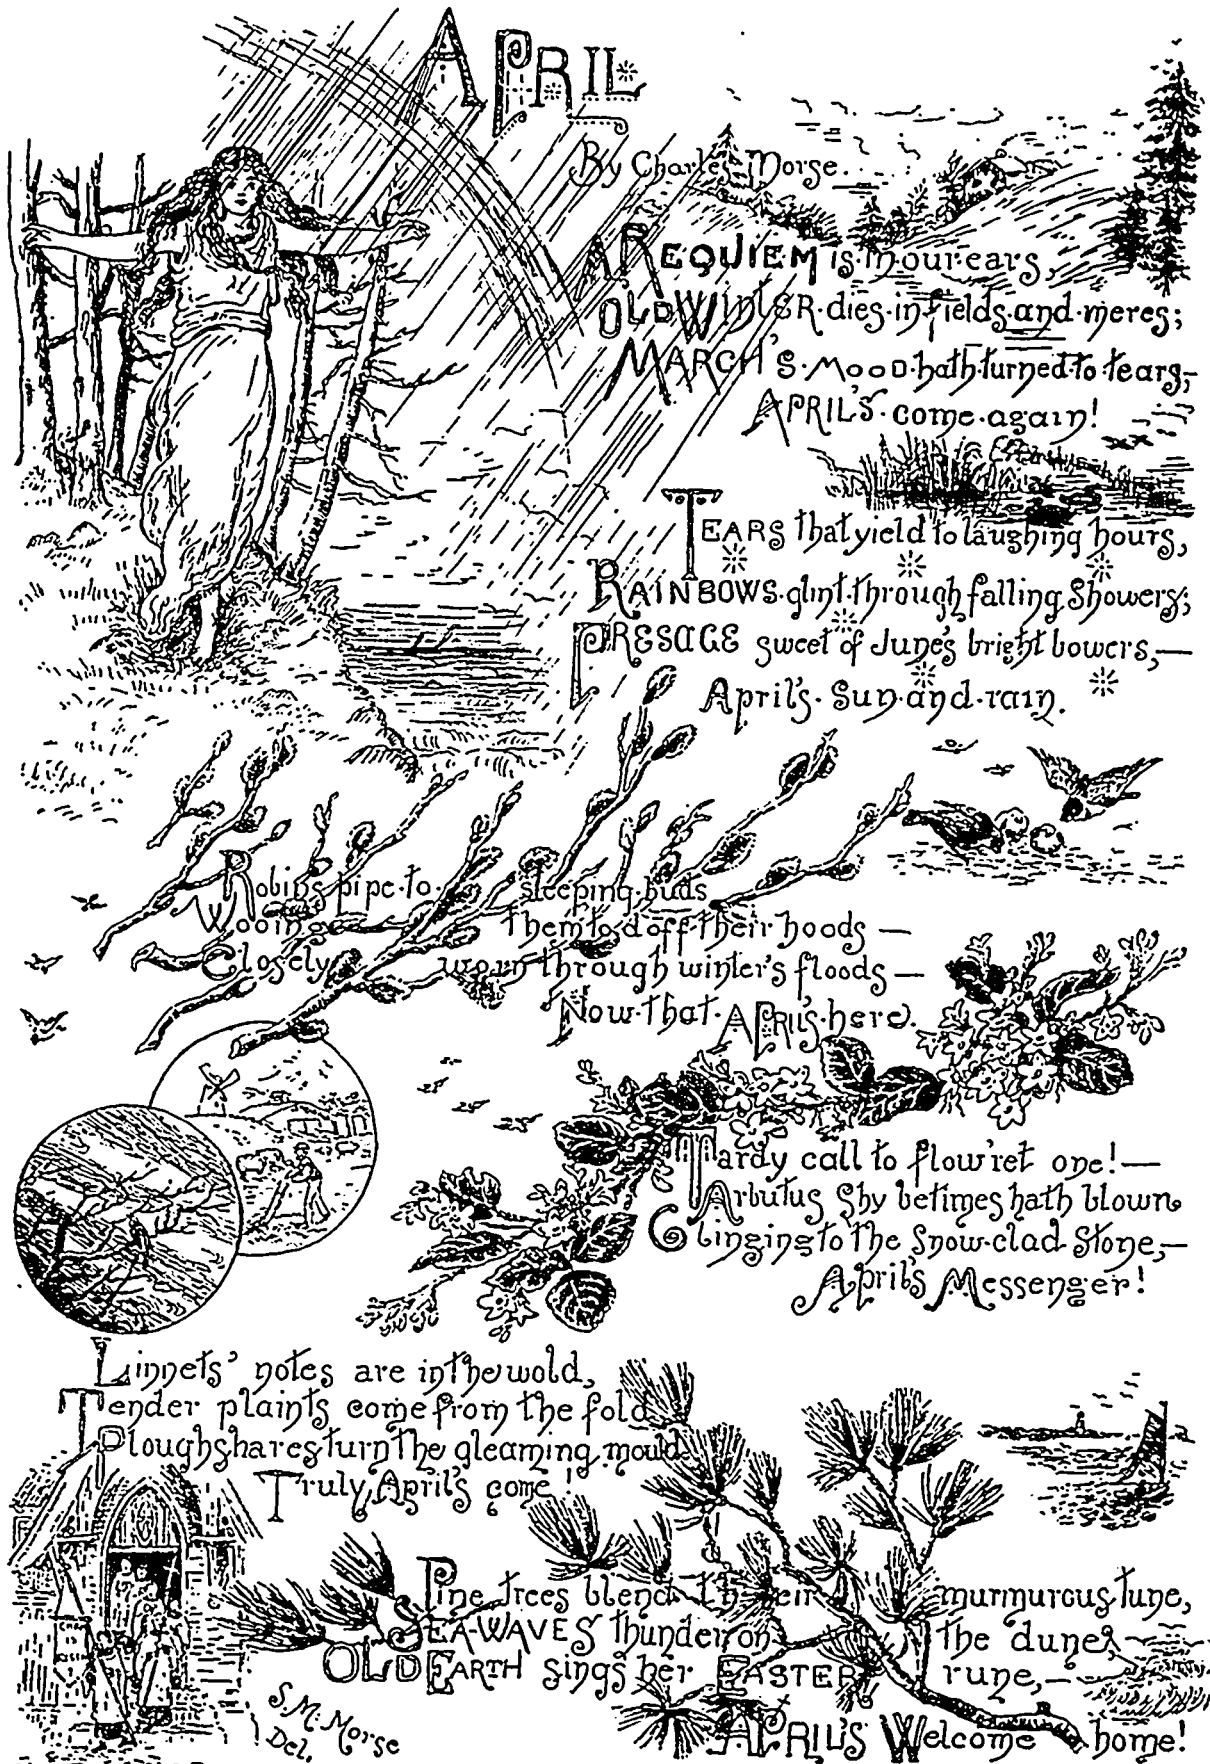 APRIL
By Charles Morse.
A REQUIEM is in our ears,
OLD WINTER dies in fields and meres;
MARCH'S MOOD hath turned to tears,—
APRIL'S come again!
TEARS that yield to laughing hours,
RAINBOWS glint through falling showers;
PRESAGE sweet of June's bright bowers,—
April's Sun and rain.
Robins pipe to sleeping buds
Wooing them to doff their hoods —
Closely worn through winter's floods —
Now that APRIL'S here.
Tardy call to flow'ret one!—
Arbutus shy betimes hath blown
Clinging to the snow-clad stone,—
April's Messenger!
Linnets' notes are in the wold,
Tender plaints come from the fold
Ploughshares turn the gleaming mould
Truly April's come!
Pine trees blend their murmurous tune,
SEA-WAVES thunder on the dunes,
OLD EARTH sings her EASTER rune,—
APRIL'S Welcome home!
S. M. Morse
Del.